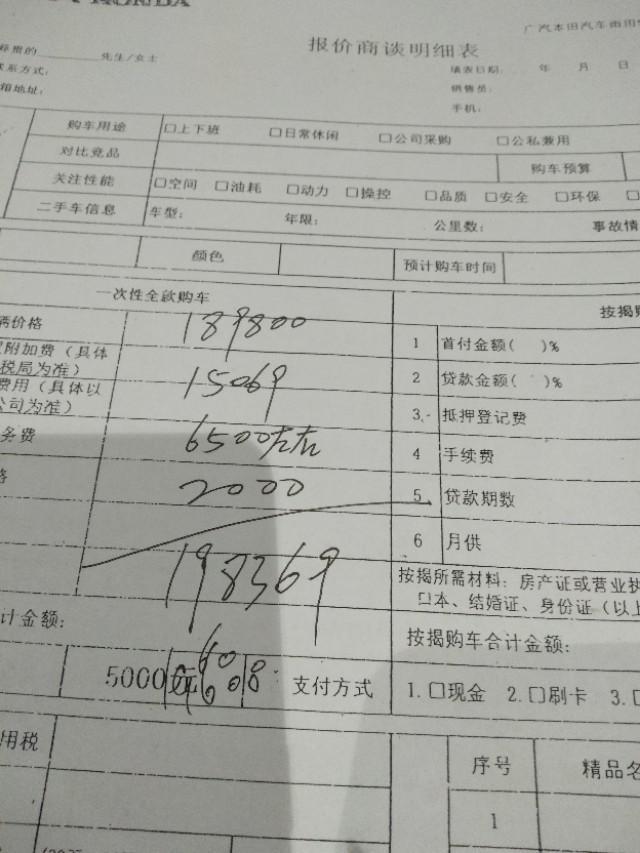 HONDA
报价商谈明细表
先生/女士
填表日期: 年 月 日
销售员:
箱地址:
手机:
购车用途 □上下班 □日常休闲 □公司采购 □公私兼用
对比竞品 购车预算
关注性能 □空间 □油耗 □动力 □操控 □品质 □安全 □环保
二手车信息 车型: 年限: 公里数: 事故情
颜色 预计购车时间
一次性全款购车 按揭购
价格 189800 1 首付金额( )%
附加费(具体
税局为准) 15069 2 贷款金额( )%
费用(具体以
公司为准) 6500左右 3 抵押登记费
务费 2000 4 手续费
格 5 贷款期数
198369 6 月供
按揭所需材料:房产证或营业执
口本、结婚证、身份证(以上
计金额: 按揭购车合计金额:
5000 支付方式 1.□现金 2.□刷卡 3.□
用税 序号 精品名
1